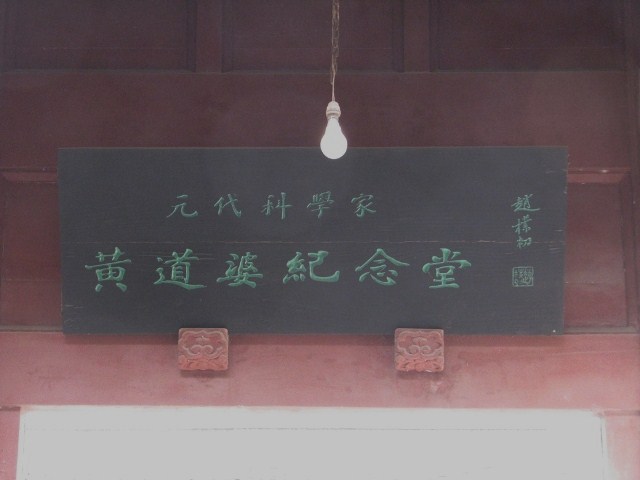 元代科學家
黃道婆紀念堂
趙樸初